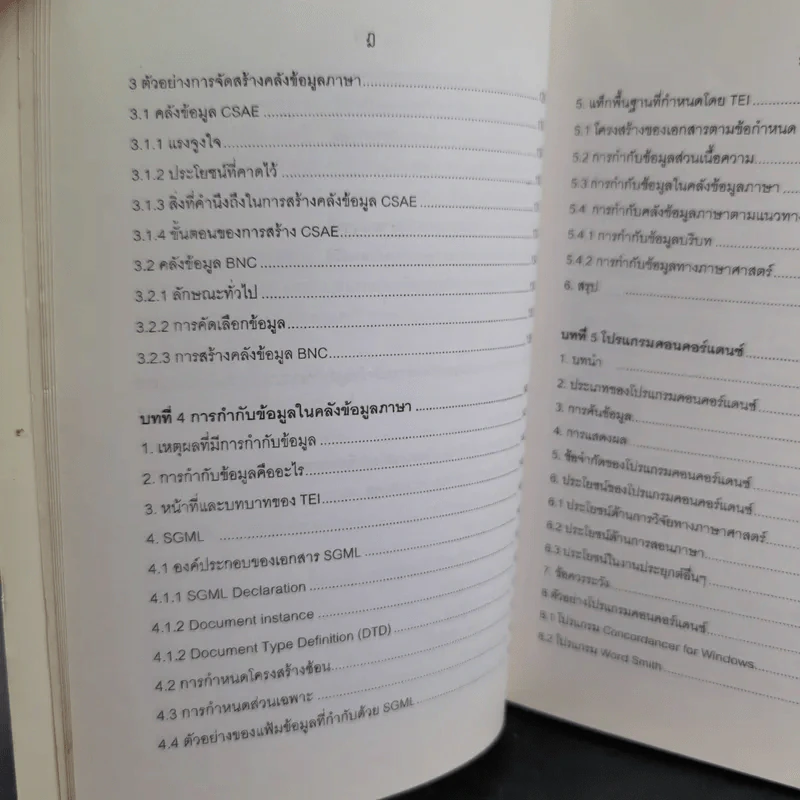 3 ตัวอย่างการจัดสร้างคลังข้อมูลภาษา
3.1 คลังข้อมูล CSAE
3.1.1 แรงจูงใจ
3.1.2 ประโยชน์ที่คาดไว้
3.1.3 สิ่งที่คำนึงถึงในการสร้างคลังข้อมูล CSAE
3.1.4 ขั้นตอนของการสร้าง CSAE
3.2 คลังข้อมูล BNC
3.2.1 ลักษณะทั่วไป
3.2.2 การคัดเลือกข้อมูล
3.2.3 การสร้างคลังข้อมูล BNC
บทที่ 4 การกำกับข้อมูลในคลังข้อมูลภาษา
1. เหตุผลที่มีการกำกับข้อมูล
2. การกำกับข้อมูลคืออะไร
3. หน้าที่และบทบาทของ TEI
4. SGML
4.1 องค์ประกอบของเอกสาร SGML
4.1.1 SGML Declaration
4.1.2 Document instance
4.1.2 Document Type Definition (DTD)
4.2 การกำหนดโครงสร้างซ้อน
4.3 การกำหนดส่วนเฉพาะ
4.4 ตัวอย่างของแฟ้มข้อมูลที่กำกับด้วย SGML
5. แท็กพื้นฐานที่กำหนดโดย TEI
5.1 โครงสร้างของเอกสารตามข้อกำหนด
5.2 การกำกับข้อมูลส่วนเนื้อความ
5.3 การกำกับข้อมูลในคลังข้อมูลภาษา
5.4 การกำกับคลังข้อมูลภาษาตามแนวทาง
5.4.1 การกำกับข้อมูลบริบท
5.4.2 การกำกับข้อมูลทางภาษาศาสตร์
6. สรุป
บทที่ 5 โปรแกรมคอนคอร์แดนซ์
1. บทนำ
2. ประเภทของโปรแกรมคอนคอร์แดนซ์
3. การค้นข้อมูล
4. การแสดงผล
5. ข้อจำกัดของโปรแกรมคอนคอร์แดนซ์
6. ประโยชน์ของโปรแกรมคอนคอร์แดนซ์
6.1 ประโยชน์ด้านการวิจัยทางภาษาศาสตร์
6.2 ประโยชน์ด้านการสอนภาษา
6.3 ประโยชน์ในงานประยุกต์อื่นๆ
7. ข้อควรระวัง
8.ตัวอย่างโปรแกรมคอนคอร์แดนซ์
8.1 โปรแกรม Concordancer for Windows
8.2 โปรแกรม Word Smith